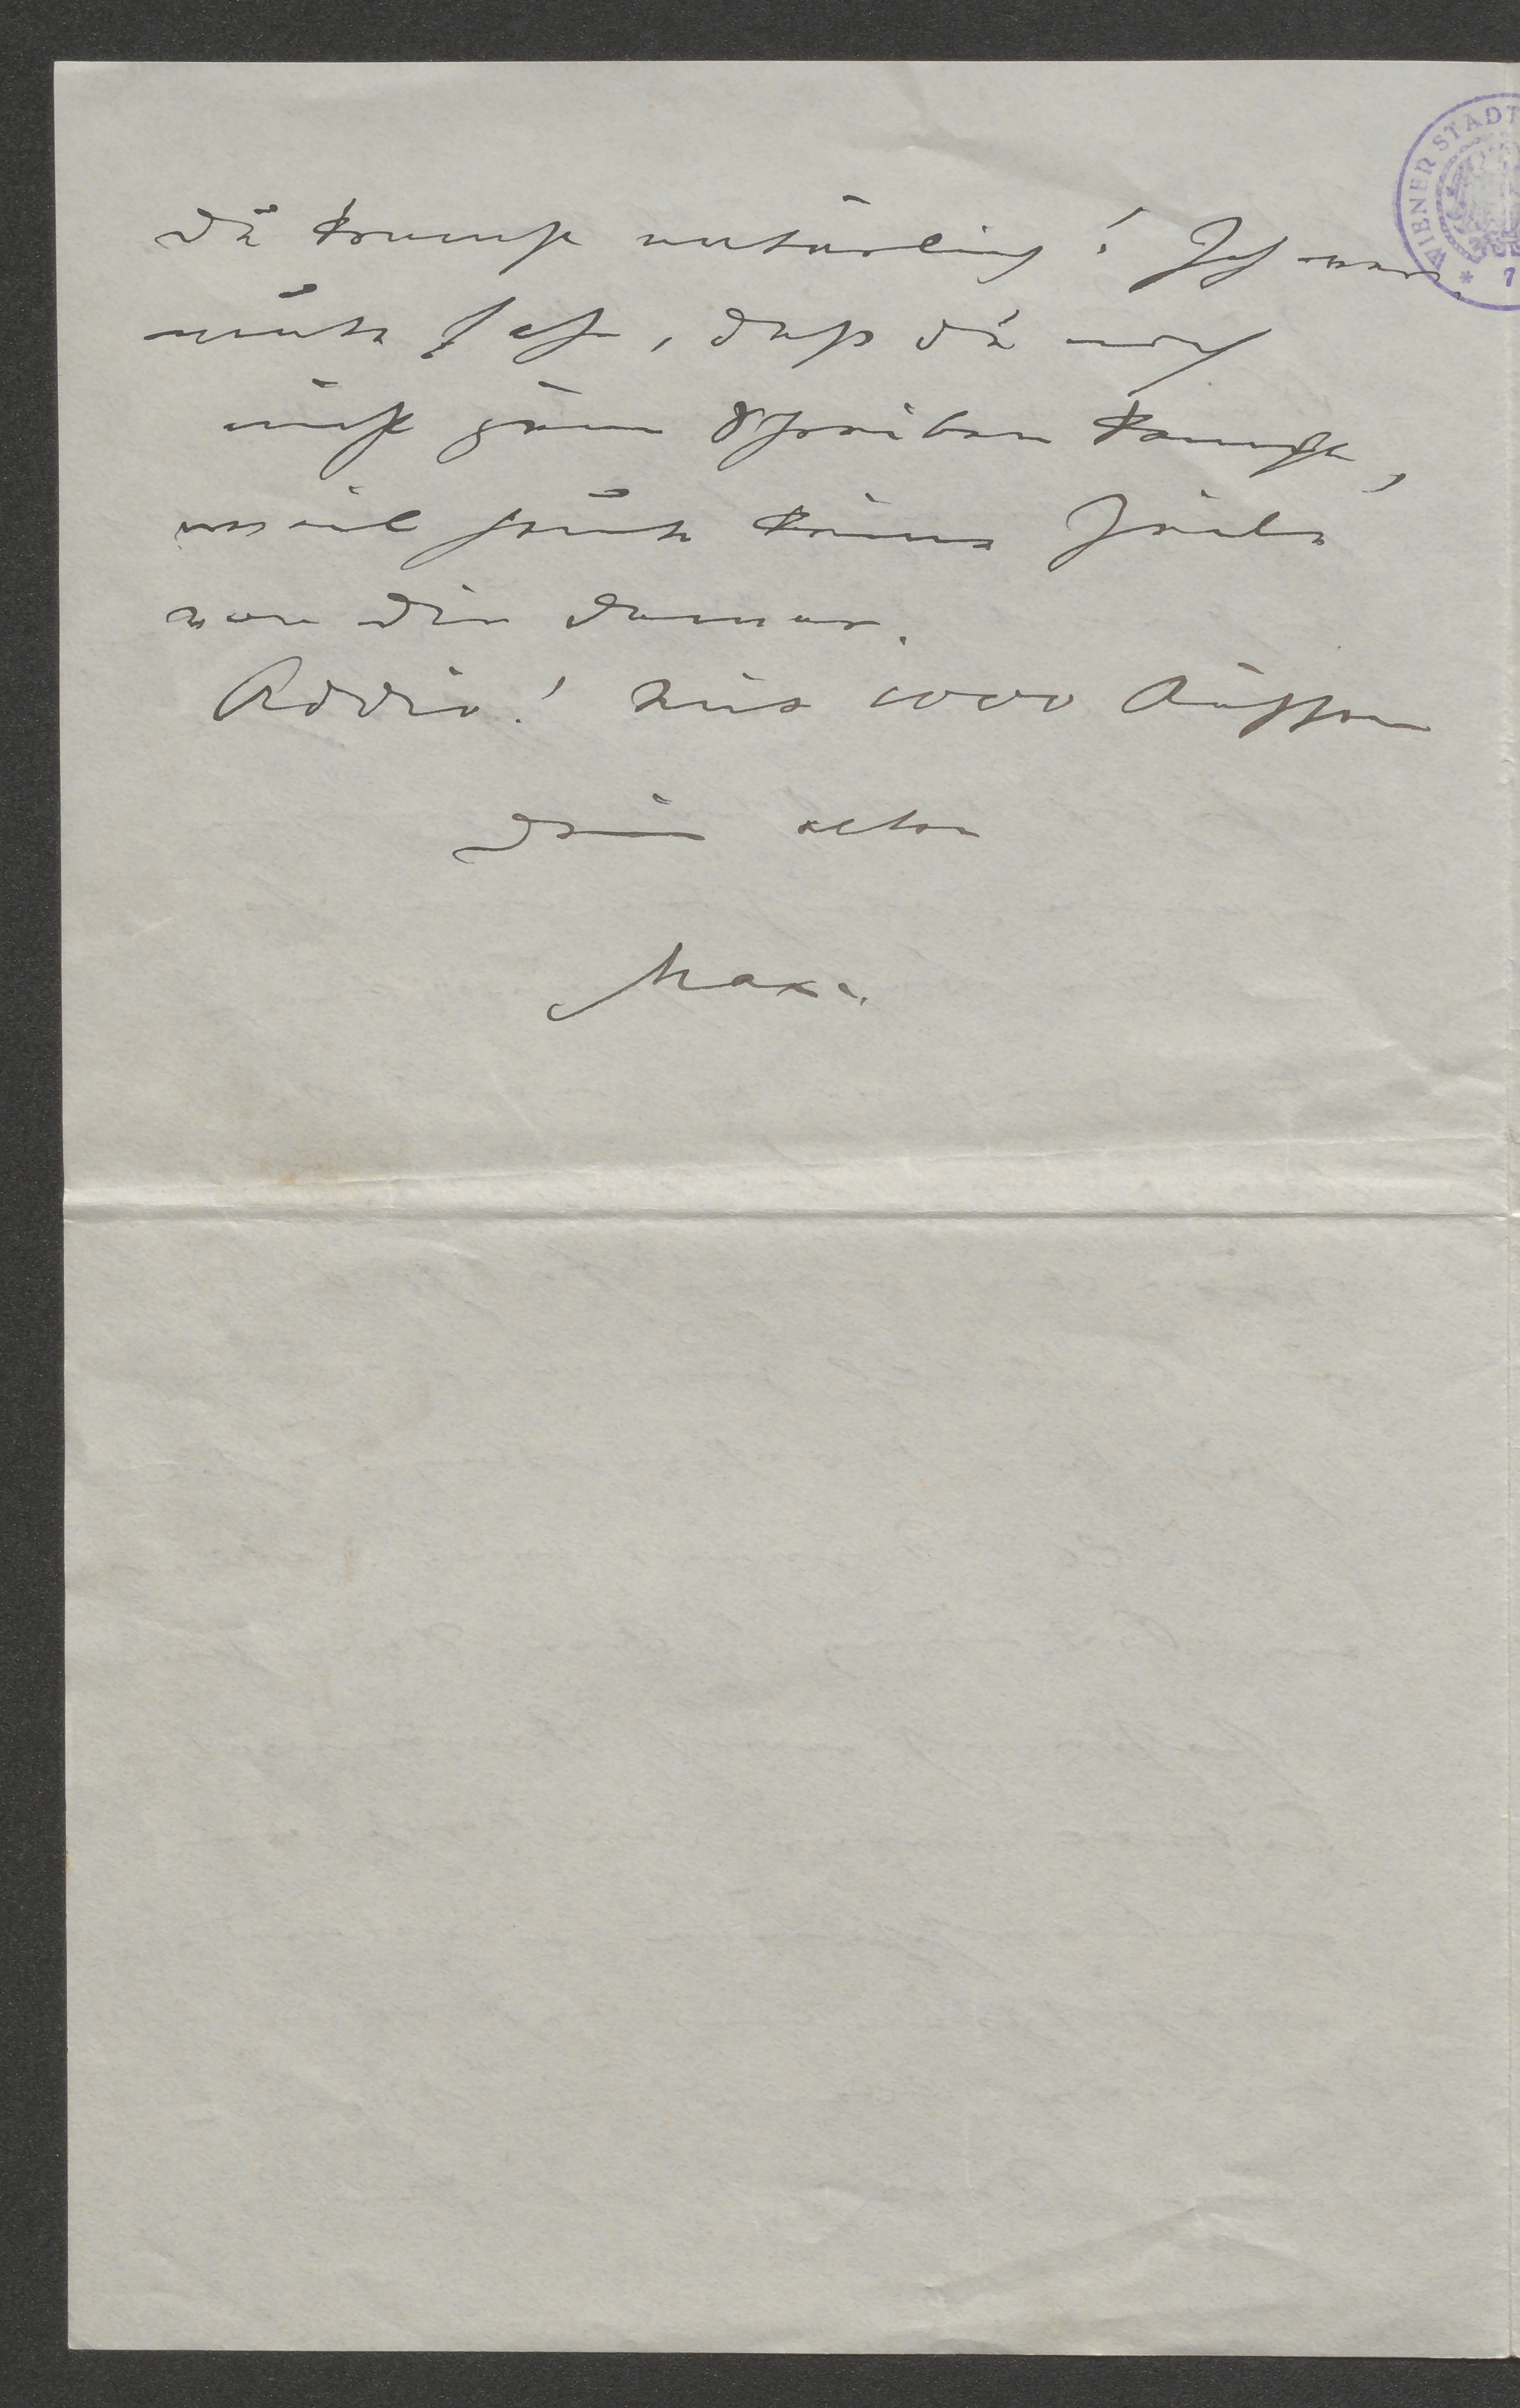 Du kommst natürlich! Ich ver-
mute fast, daß du noch
nicht zum Schreiben kamst,
weil heute keine Zeile
von dir da war.
Addio! Mit 1000 Küssen
dein alter
Max.
WIENER STADT
* 7